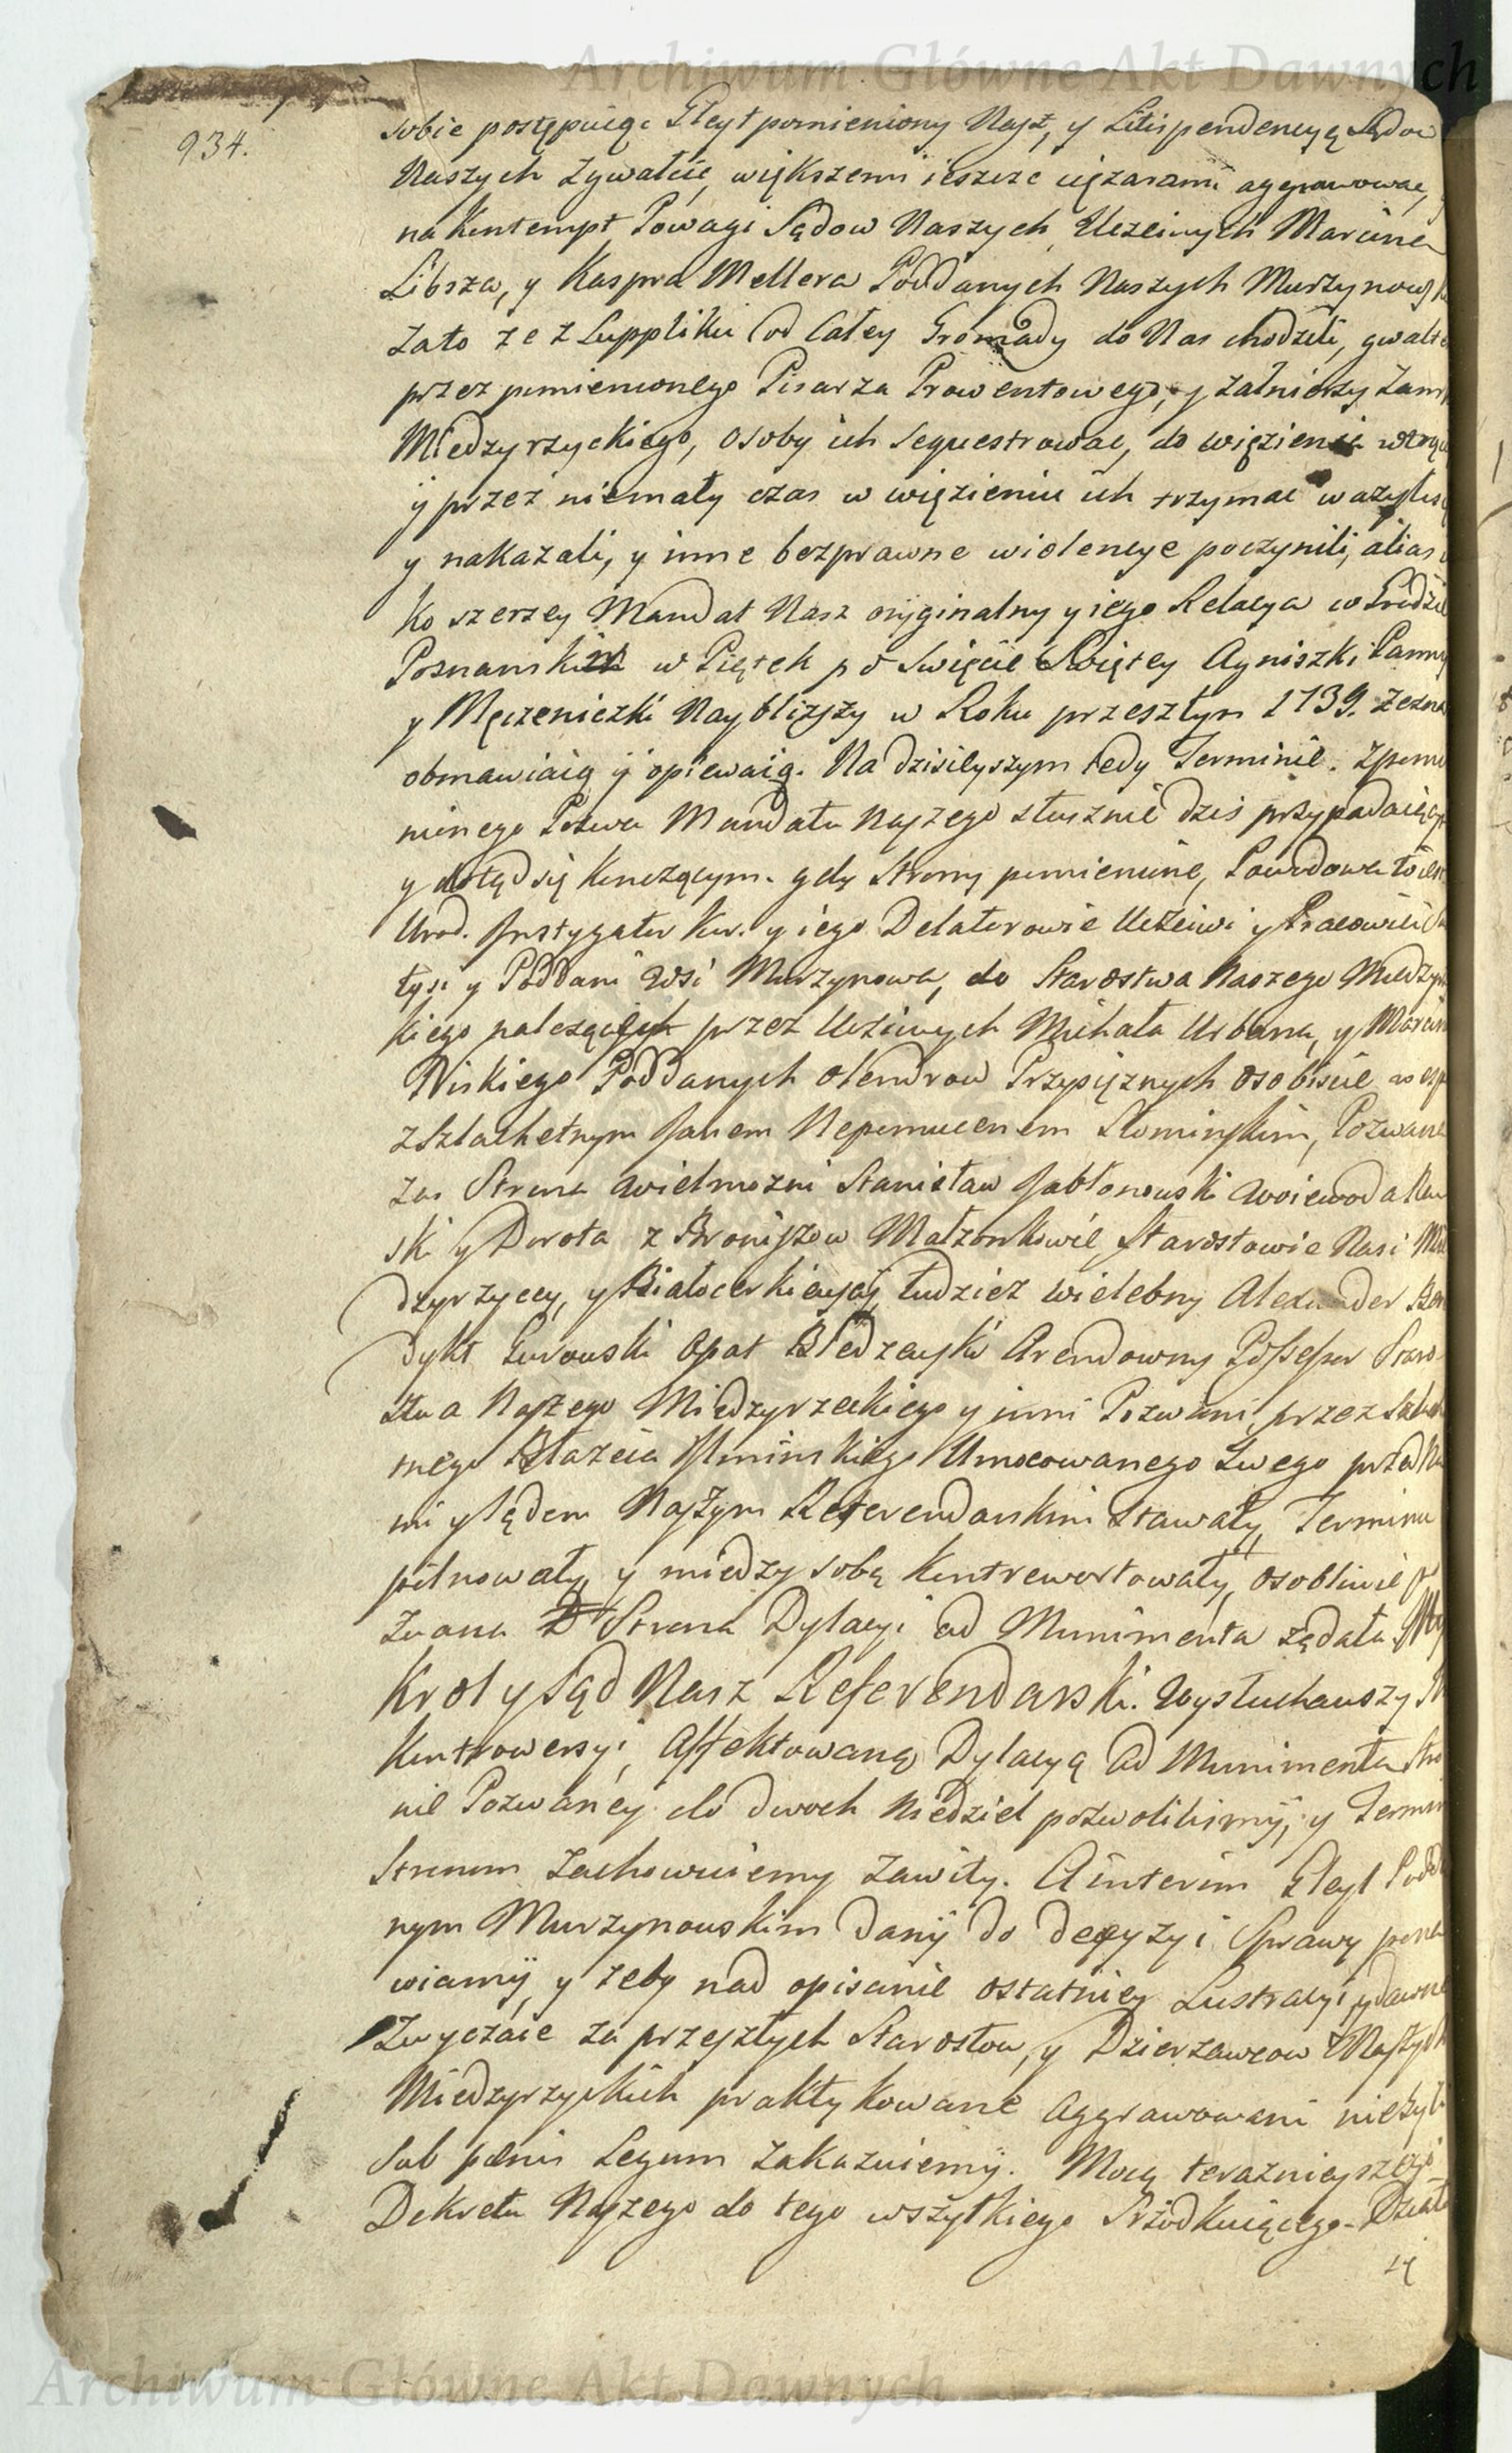 Archiwum Główne Akt Dawnych
934.
sobie postępuiąc Gleyt pomieniony Nasz, y Litispendencyą Sądow
Naszych zgwałcić, większemi ieszcze ciężarami aggrawować,
na kontempt Powagi Sądow Naszych Uczciwych Marcina
Libsza, y Kaspra Mellera Poddanych Naszych Murzynowsk
zato ze z Suppliką od całey Gromady do Nas chodzili, gwałto
przez pomienionego Pisarza Prowentowego, y żałnierzy Zam
Miedzyrzyckiego, osoby ich sequestrować, do więzienia wtrąc
ÿ przez niemały czas w więzieniu ich trzymać ważyli się
y nakazali, y inne bezprawne wiolencye poczynili, alias
ko szerzey Mandat Nasz oryginalny y iego Relacya w Grodzie
Poznanskim w Piątek po Swięcie Swiętey Agniszki Panny
y Męczeniczki Nayblizszy w Roku przeszłym 1739. zezna
obmawiaią ÿ opiewaią. Na dzisieyszym tedy Terminie. z pomie
nionego Pozwu Mandatu Naszego słusznie dziś przypadaiącym
y dotąd się kończącym. gdy Strony pomienione, Powodowa to iest
Urod. Instygator Kor. y iego Delatorowie Uczciwi y Pracowici
łysi y Poddani Wsi Murzynowa, do Starostwa Naszego Miedzyr
kiego nalezących przez Uczciwych Michała Urbana, y Marcin
Wiskiego Poddanych olendrow Przysięznych osobiscie
z Szlachetnym Janem Nepomucenem Słominskim, Pozwana
zas Strona Wielmozni Stanisław Jabłonowski Woiewoda Raw
ski y Dorota z Broniszow Małzonkowie Starostowie Nasi Mie
dzyrzyccy, y Białocerkiewscy, tudziez Wielebny Alexander Bene
dykt Gurowski Opat Bledzewski Arendowny Possessor Staro-
stwa Naszego Miedzyrzeckiego y inni Pozwani, przez Szlach
tnego Błazeia Umocowanego swego przed Na
mi y Sądem Naszym Referendarskim stawały, Terminu
pilnowały, y między sobą kontrowertowały, osobliwie po
zwana Strona Dylacyi ad Munimenta ządała. My
Krol y Sąd Nasz Referendarski. Wysłuchawszy
Kontrowersyi, Affektowaną Dylacyą ad Munimenta Stro
nie Pozwaney do dwoch Niedziel pozwolilismÿ, y Termin
Stronom zachowuiemy zawity. A interim Gleyt Podda
nym Murzynowskim danÿ do decyzyi Sprawy pona
wiamÿ, y zeby nad opisanie ostatniey Lustracyi, y dawne
Zwyczaie za przeszłych Starostow, y Dzierzawcow Naszych
Miedzyrzyckich praktykowane aggrawowani nie byli
Sub pœnis Legum zakazuiemÿ. Mocą teraznieyszego
Dekretu Naszego do tego wszytkiego Srzodkuiącego. Działo
się
Archiwum Główne Akt Dawnych